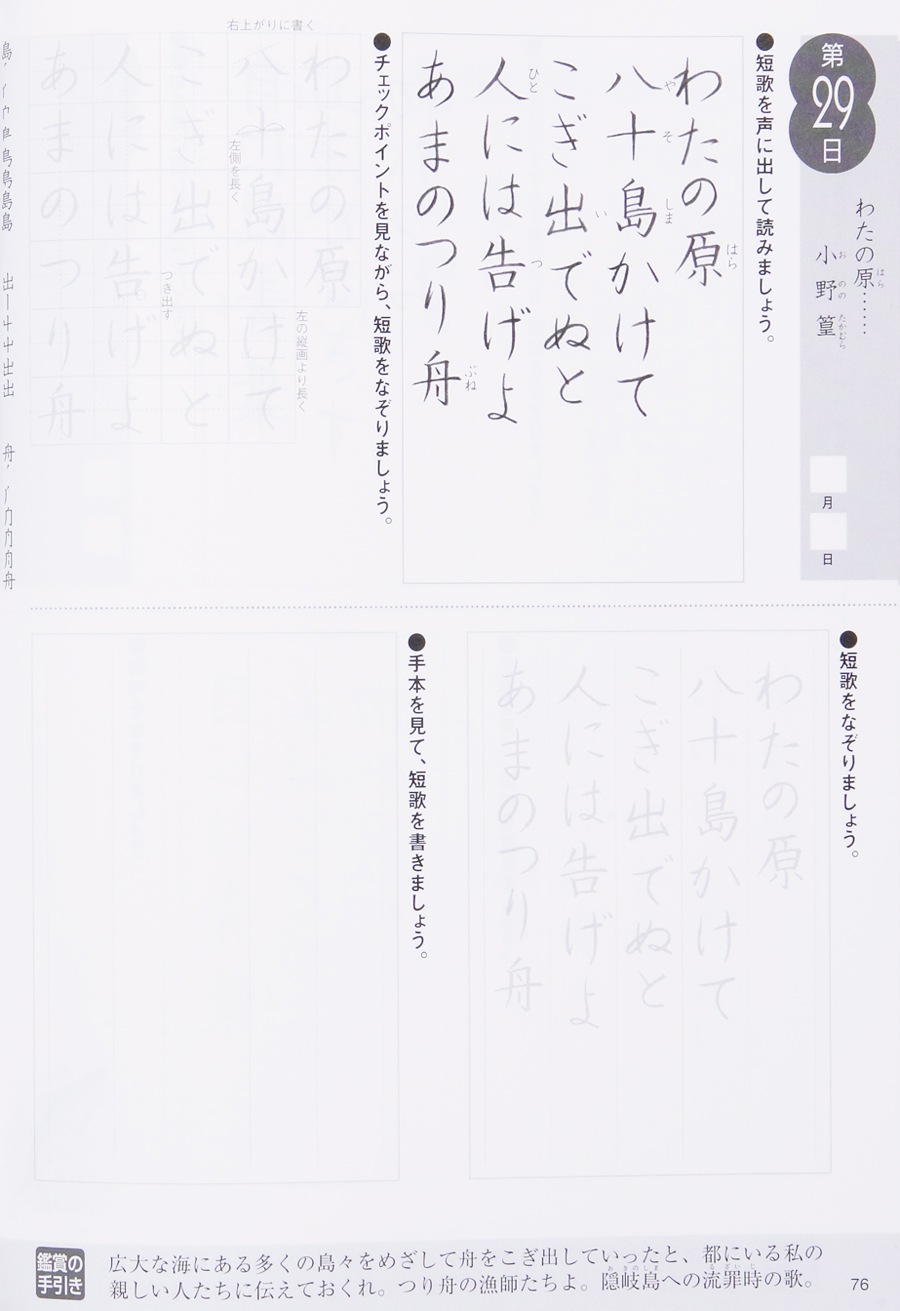 第
29
日
わたの原……
はら
小野篁
おののたかむら
月
日
●短歌を声に出して読みましょう。
わたの原
はら
八十島かけて
やそしま
こぎ出でぬと
い
人には告げよ
ひとつ
あまのつり舟
ぶね
●チェックポイントを見ながら、短歌をなぞりましょう。
右上がりに書く
わたの原
左の縦画より長く
八十島かけて
左側を長く
こぎ出でぬと
つき出す
人には告げよ
あまのつり舟
●短歌をなぞりましょう。
わたの原
八十島かけて
こぎ出でぬと
人には告げよ
あまのつり舟
●手本を見て、短歌を書きましょう。
鑑賞の
手引き
広大な海にある多くの島々をめざして舟をこぎ出していったと、都にいる私の
親しい人たちに伝えておくれ。つり舟の漁師たちよ。隠岐島への流罪時の歌。
おきのしま
るざいじ
76